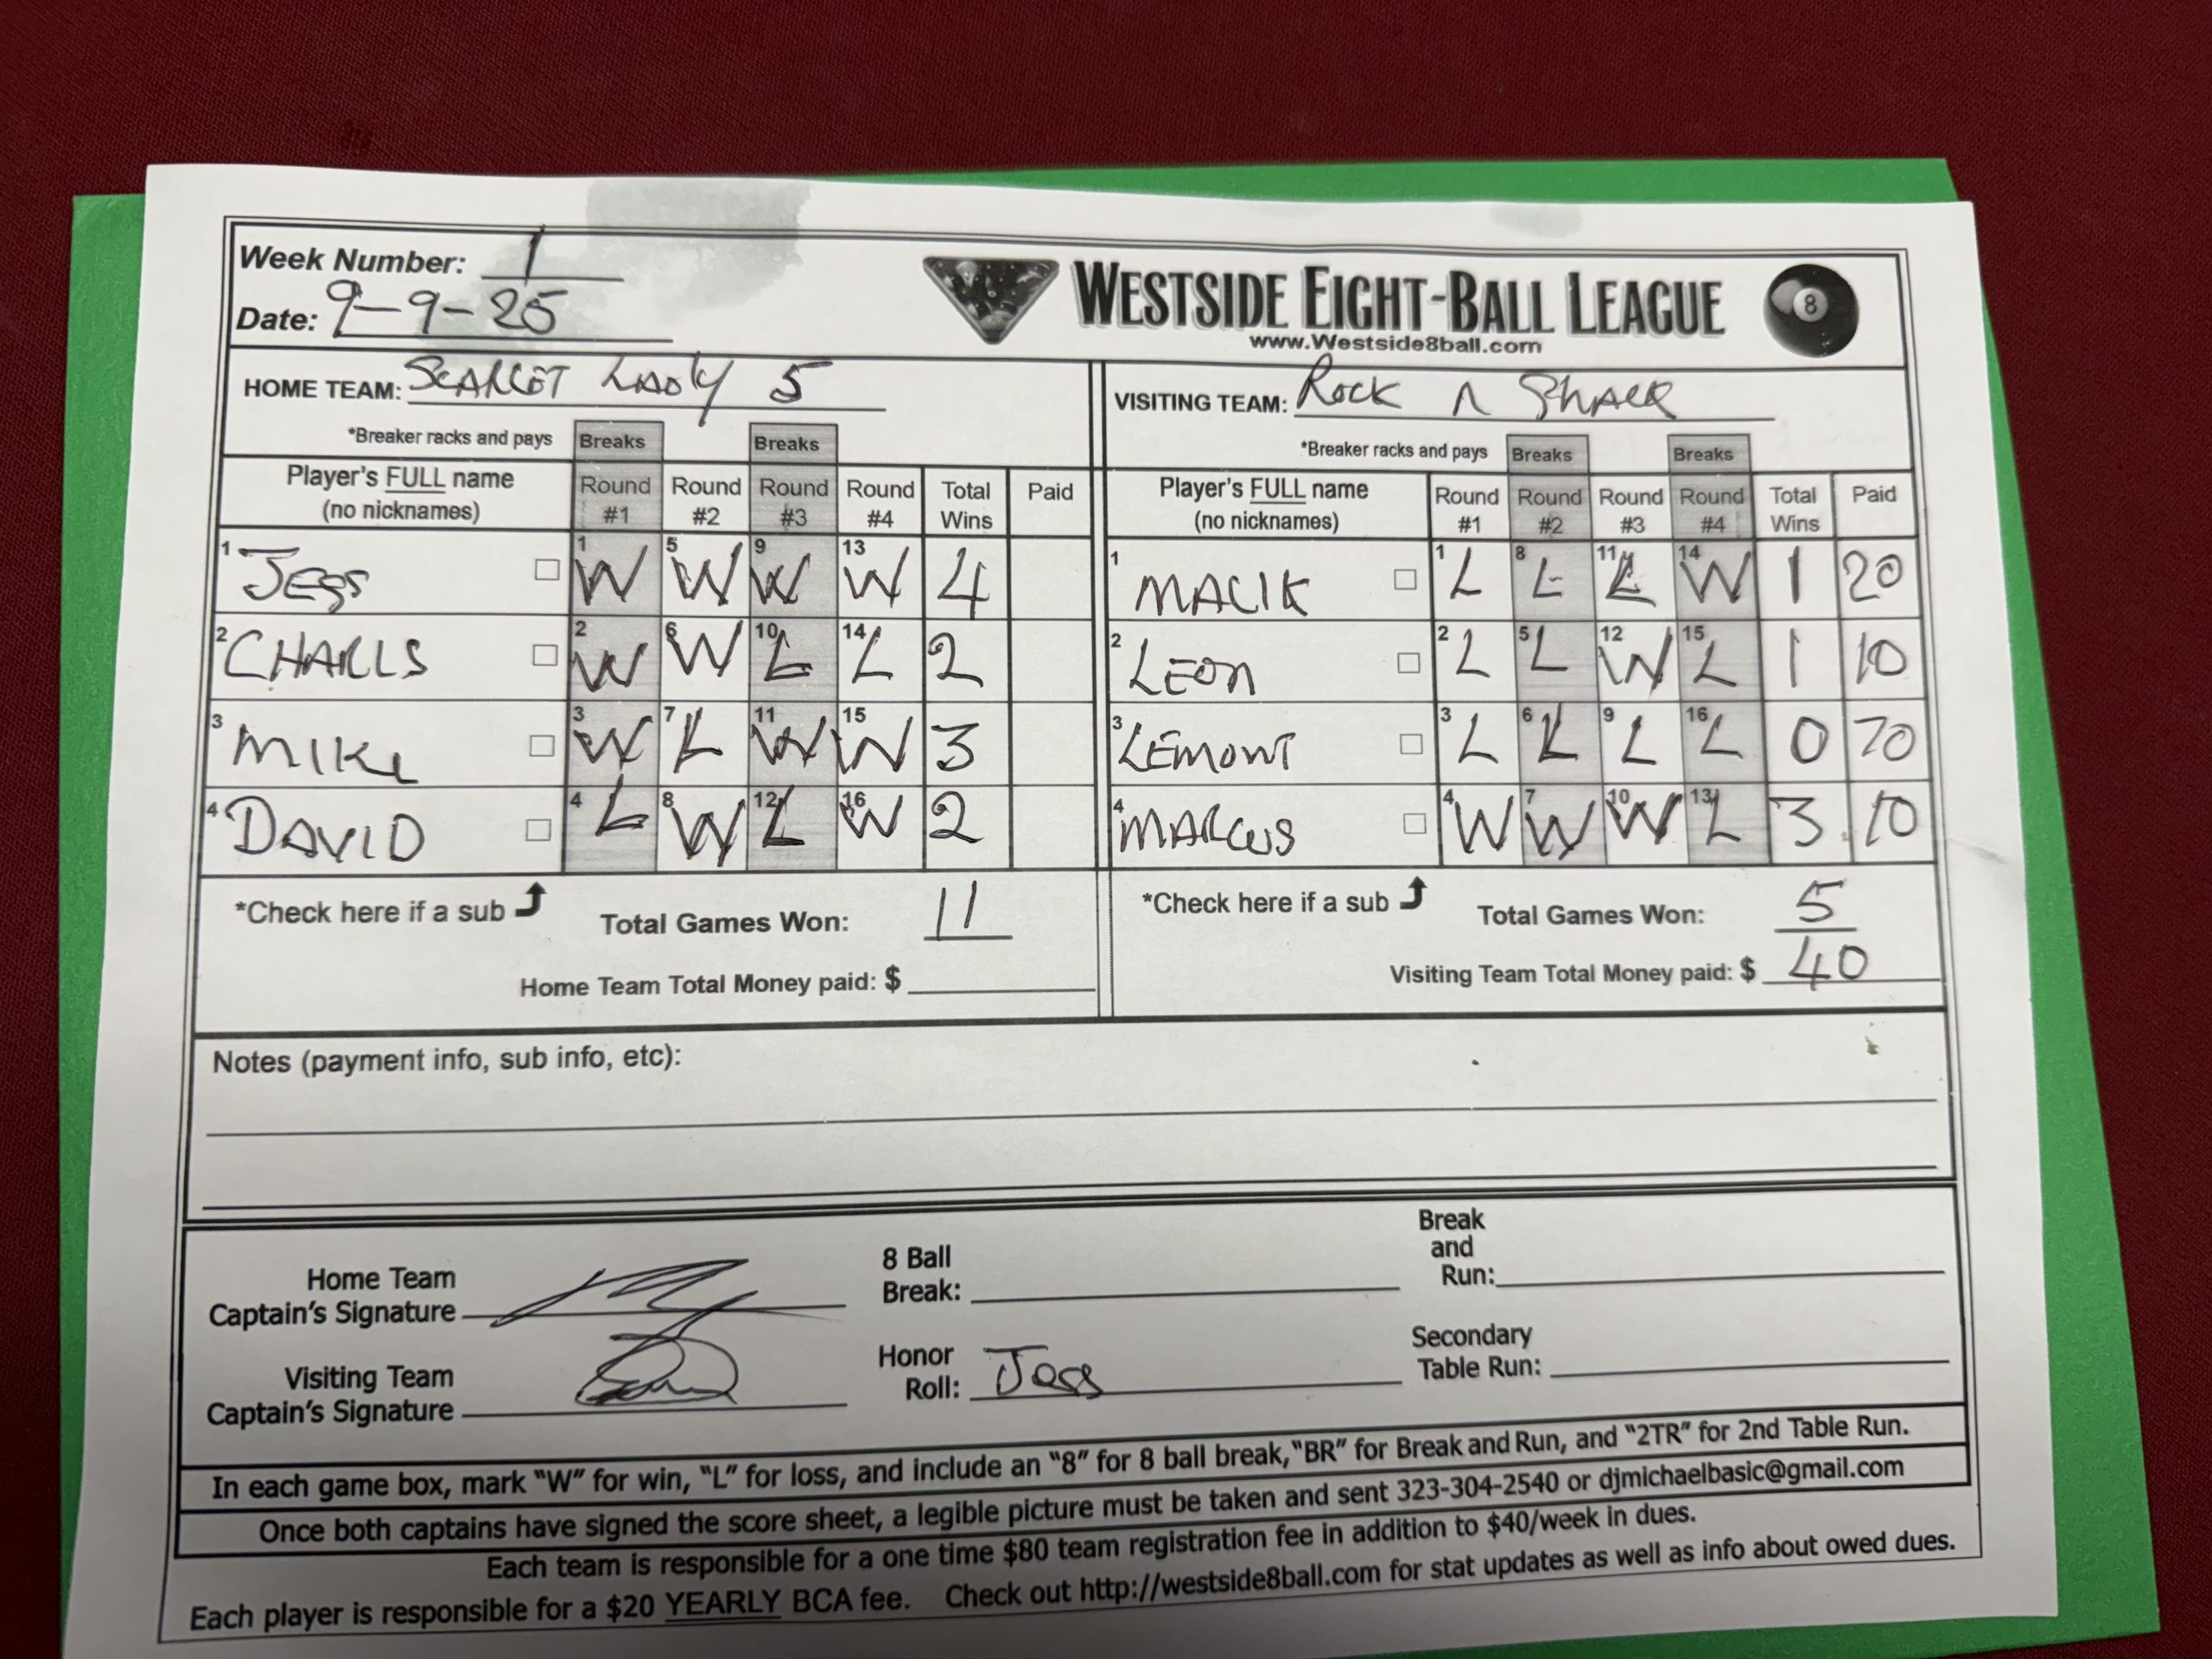 Week Number: 1
Date: 9-9-25
WESTSIDE EIGHT-BALL LEAGUE
www.Westside8ball.com
8
HOME TEAM: SCARLET LADY 5
VISITING TEAM: ROCK N SHACK
*Breaker racks and pays Breaks Breaks
*Breaker racks and pays Breaks Breaks
Player's FULL name (no nicknames) Round #1 Round #2 Round #3 Round #4 Total Wins Paid
Player's FULL name (no nicknames) Round #1 Round #2 Round #3 Round #4 Total Wins Paid
1 JESS 1 W 5 W 9 W 13 W 4
1 MALIK 1 L 8 L 11 L 14 W 1 20
2 CHARLS 2 W 6 W 10 L 14 L 2
2 LEON 2 L 5 L 12 W 15 L 1 10
3 MIKE 3 W 7 L 11 W 15 W 3
3 LEMONT 3 L 6 L 9 L 16 L 0
4 DAVID 4 L 8 W 12 L 16 W 2
4 MARCUS 4 W 7 W 10 W 13 L 3 10
*Check here if a sub Total Games Won: 11
*Check here if a sub Total Games Won: 5
Home Team Total Money paid: $
Visiting Team Total Money paid: $ 40
Notes (payment info, sub info, etc):
Home Team Captain's Signature
8 Ball Break:
Break and Run:
Visiting Team Captain's Signature
Honor Roll: Jess
Secondary Table Run:
In each game box, mark "W" for win, "L" for loss, and include an "8" for 8 ball break, "BR" for Break and Run, and "2TR" for 2nd Table Run.
Once both captains have signed the score sheet, a legible picture must be taken and sent 323-304-2540 or djmichaelbasic@gmail.com
Each team is responsible for a one time $80 team registration fee in addition to $40/week in dues.
Each player is responsible for a $20 YEARLY BCA fee. Check out http://westside8ball.com for stat updates as well as info about owed dues.